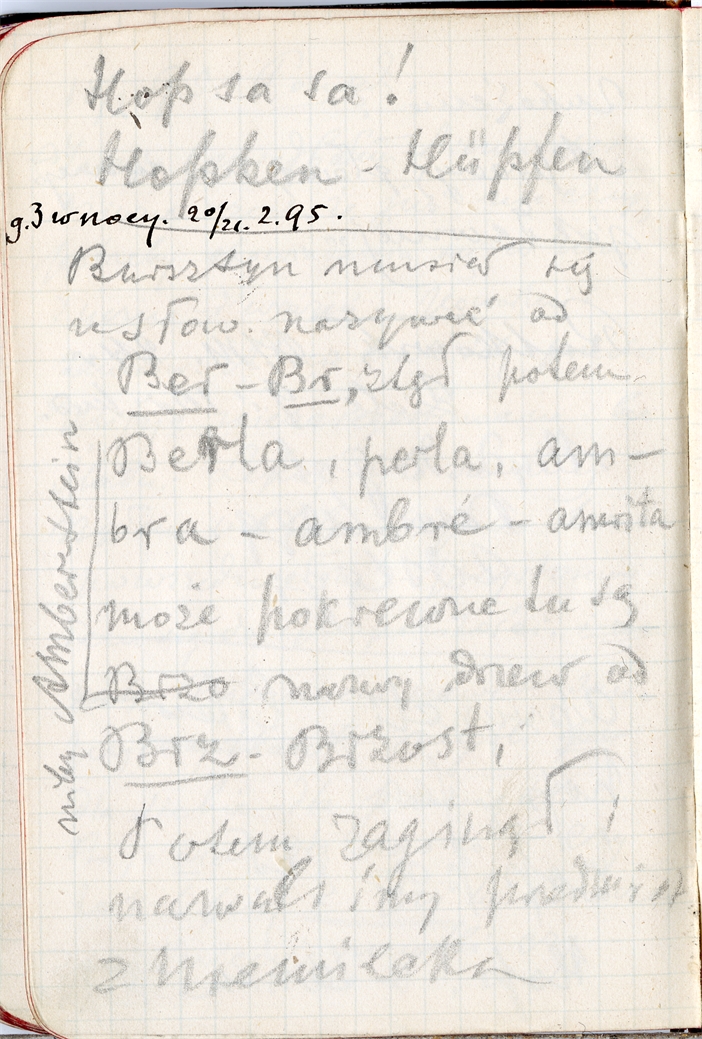 Hop sa sa!
Hopken - Hüpfen
g. 3 w nocy. 20/21. 2. 95.
Bursztyn musiał się
u Słow. nazywać od
Ber - Br, stąd potem
Berła, perła, am-
bra - ambré - amrita
może pokrewne tu są
Brzo nazwy drzew od
Brz - Brzost,
Potem zaginął i
nazwali inny przedmiot
z niemiecka
niby Amberstein